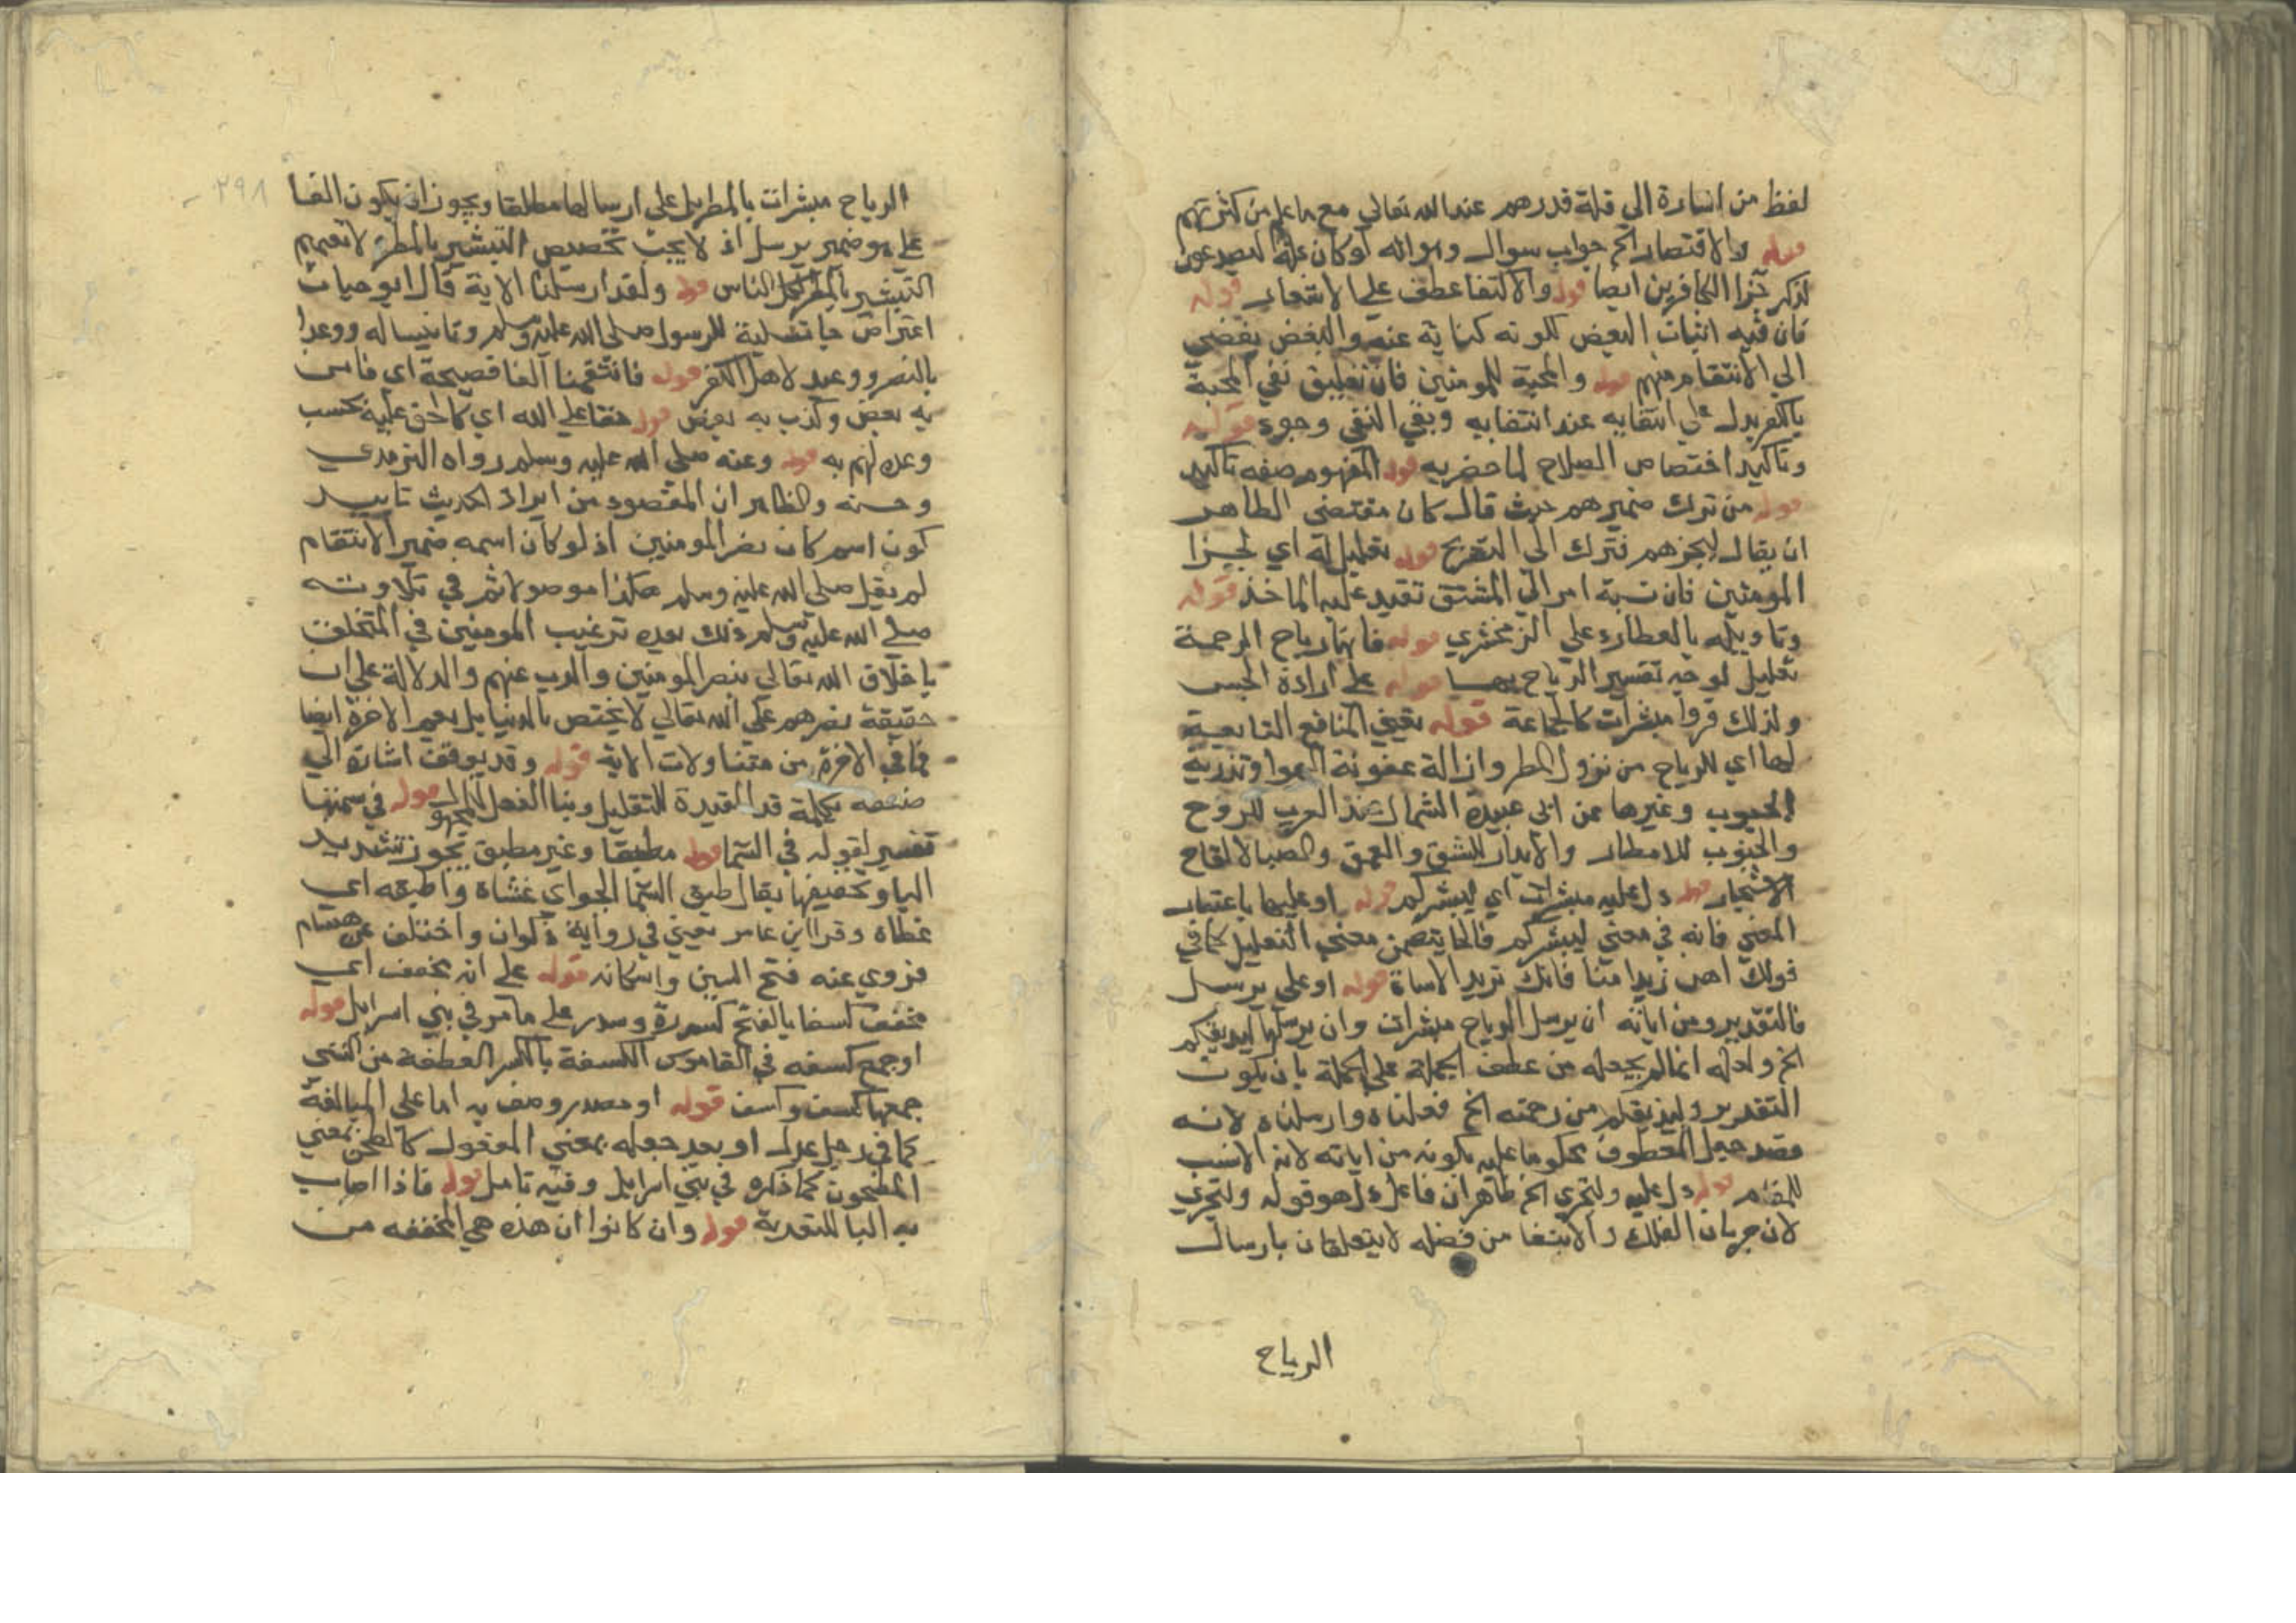 لفظ من اشارة الى قلة قدرهم عند الله تعالى مع ما علم من كثرتهم
قوله والاقتصار الخ جواب سوال وهو انه لو كان علة ليصدعون
لذكر جزا الكافرين ايضا قوله والاكتفا عطف على الاشعار قوله
فان فيه اثبات البغض لكونه كناية عنه والبغض يفضي
الى الانتقام منهم قوله والمحبة للمومنين فان تعليق نفي المحبة
بالكفر يدل على انتفايه عند انتفايه ونفي النفي وجود قوله
وتاكيد اختصاص الصلاح لما حضر به قوله المفهوم صفه تاكيد
قوله من ترك ضميرهم حيث قال كان مقتضى الظاهر
ان يقال ليجزهم فترك الى التصريح قوله تعليل له اي لجزا
المومنين فان نسبة امر الى المشتق تفيد علية الماخذ قوله
وتاويله بالعطارد على الزمخشري قوله فانها رياح الرحمة
تعليل لوجه تفسير الرياح بهما قوله على ارادة الجنس
ولذلك قروا مبشرات كالجماعة قوله يعني المنافع التابعة
لها اي للرياح من نزول المطر وازالة عفونة الهوا وتذرية
الحبوب وغيرها عن ابي عبيدة الشمال عند العرب للروح
والجنوب للامطار والانداء للشق والعمق والصبا لالقاح
الاشجار قوله دل عليه مبشرات اي ليبشركم قوله او عليها باعتبار
المعنى فانه في معنى ليبشركم فالحا يتضمن معنى التعليل كما في
قولك اهن زيدا متنا فانك تريد الاساة قوله او على يرسل
فالتقدير ومن اياته ان يرسل الرياح مبشرات وان يرسلها ليذيقكم
الخ ولعله انما لم يجعله من عطف الجملة على الجملة بان يكون
التقدير وليذيقكم من رحمته الخ فعلناه وارسلناه لانه
قصد جعل المعطوف محكوما عليه بكونه من اياته لانه الانسب
للمقام قوله دل عليه ولتجري الخ ظاهر ان فاعل دل هو قوله ولتجري
لان جريان الفلك والابتغا من فضله لا يتعلقان بارسال
الرياح
٢٩٨
الرياح مبشرات بالمطر بل على ارسالها مطلقا ويجوز ان يكون الفا
على هو ضمير يرسل اذ لا يجب تخصيص التبشير بالمطر لا تعميم
التبشير بالمطر لكل الناس قوله ولقد ارسلنا الاية قال ابو حيان
اعتراض جا تسلية للرسول صلى الله عليه وسلم وتانيسا له ووعدا
بالنصر ووعيد لاهل الكفر قوله فانتقمنا الفا فصيحة اي فامن
به بعض وكذب به بعض قوله حقا على الله اي كالحق عليه بحسب
وعده لهم به قوله وعنه صلى الله عليه وسلم رواه الترمذي
وحسنه والظاهر ان المقصود من ايراد الحديث تاييد
كون اسم كان نصر المومنين اذ لو كان اسمه ضمير الانتقام
لم يقل صلى الله عليه وسلم هكذا موصولا ثم في تلاوته
صلى الله عليه وسلم ذلك بعده ترغيب المومنين في التخلق
باخلاق الله تعالى بنصر المومنين والذب عنهم والدلالة على ان
حقيقة نصرهم على الله تعالى لا يختص بالدنيا بل يعم الاخرة ايضا
فما في الاخرة من متناولات الاية قوله وقد يوقف اشارة الى
ضعفه بكلمة قد المفيدة للتقليل وبنا الفعل للمجهول قوله في سمتها
تفسير لقوله في السما قوله مطبقا وغير مطبق يجوز تشديد
البا وتخفيفها يقال طبق السما الجو اي غشاه واطبقه اي
غطاه وقرا ابن عامر يعني في رواية ذكوان واختلف عن هشام
فروي عنه فتح السين واسكانه قوله على انه مخفف اي
مخفف كسفا بالفتح كسدرة وسدر على ما مر في بني اسرايل قوله
او جمع كسفه في القاموس الكسفة بالكسر القطعة من الشي
جمعها كسف وكسف قوله او مصدر وصف به اما على المبالغة
كما في رجل عدل او بعد جعله بمعنى المفعول كالطحن بمعنى
المطحون كما ذكره في بني اسرايل وفيه تامل قوله فاذا اصاب
به البا للتعدية قوله وان كانوا ان هذه هي المخففه من